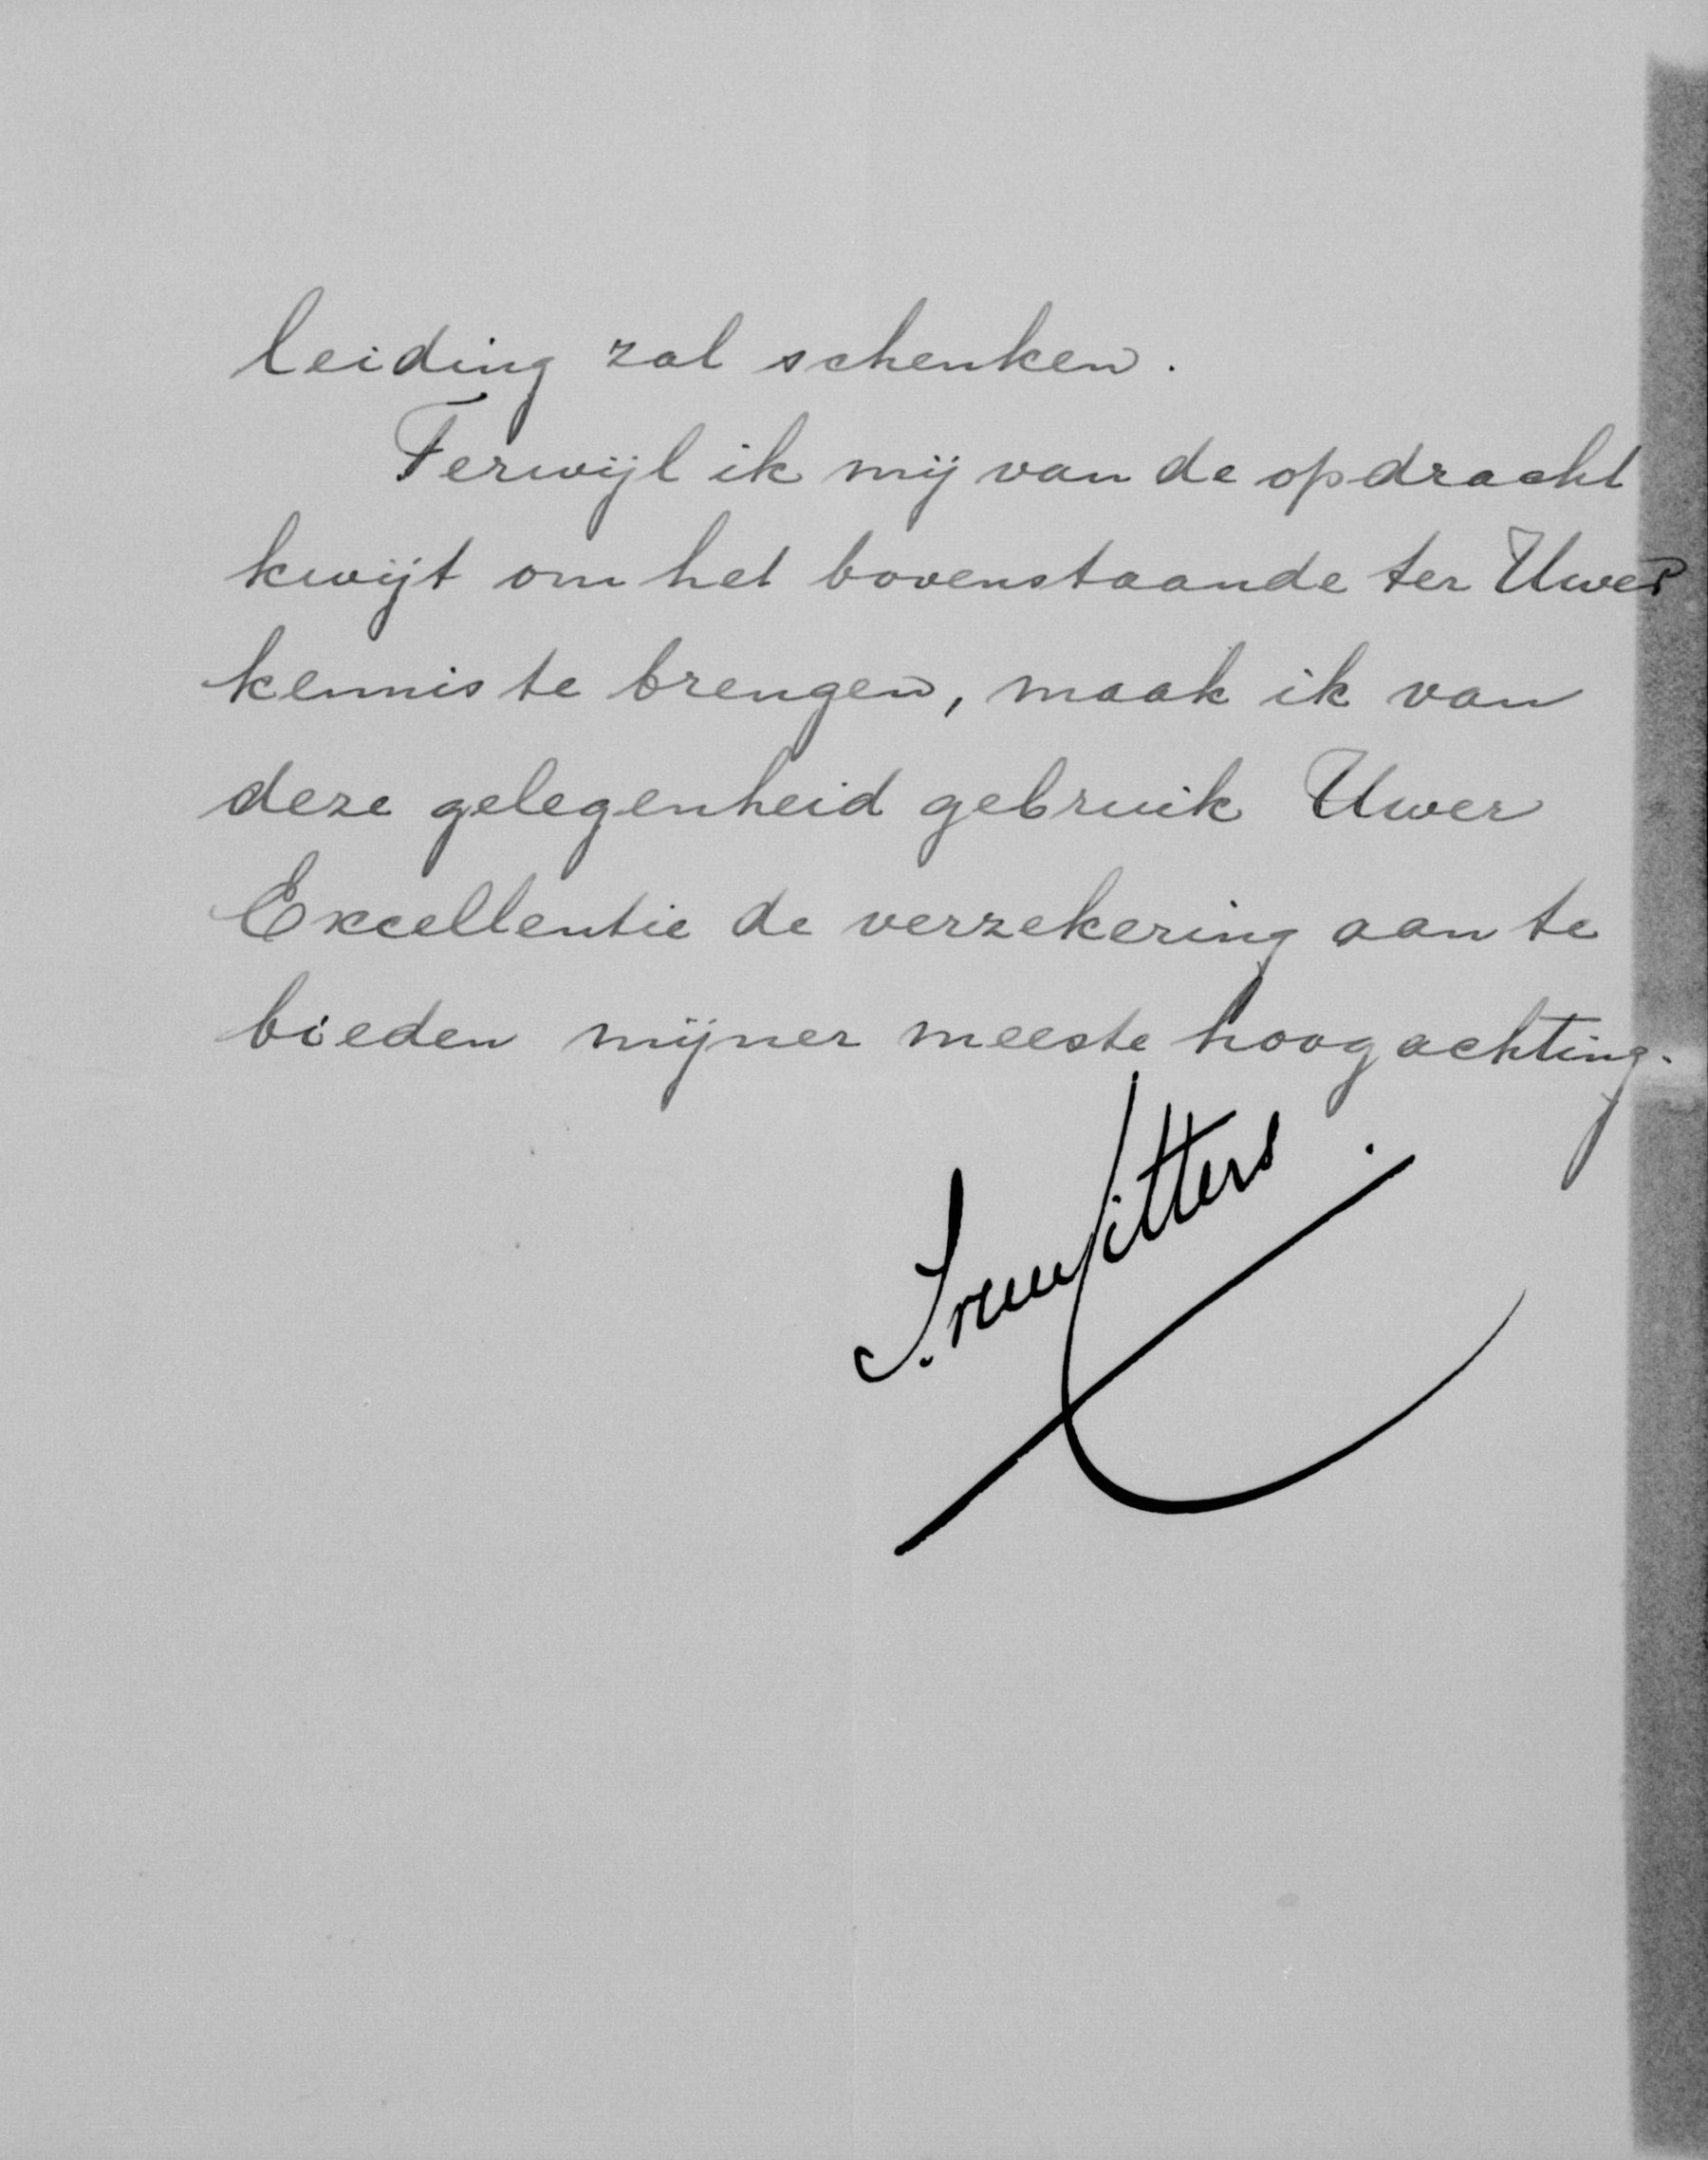 leiding zal schenken.
Terwijl ik mij van de opdracht
kwijt om het bovenstaande ter Uwer
kennis te brengen, maak ik van
deze gelegenheid gebruik Uwer
Excellentie de verzekering aan te
bieden mijner meeste hoogachting.